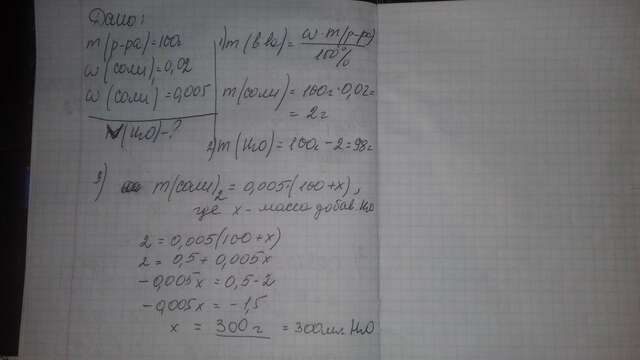 Дано:
m(р-ра)=100г
ω(соли)=0,02
ω(соли)=0,005
V(H₂O)-?
1) m(в-ва) = ω·m(р-ра)
100%
m(соли) = 100г·0,02=
= 2г
2) m(H₂O) = 100г-2=98г
3) m(соли)₂ = 0,005(100+x),
где x - масса добав. H₂O
2 = 0,005(100+x)
2 = 0,5+0,005x
-0,005x = 0,5-2
-0,005x = -1,5
x = 300г = 300мл H₂O